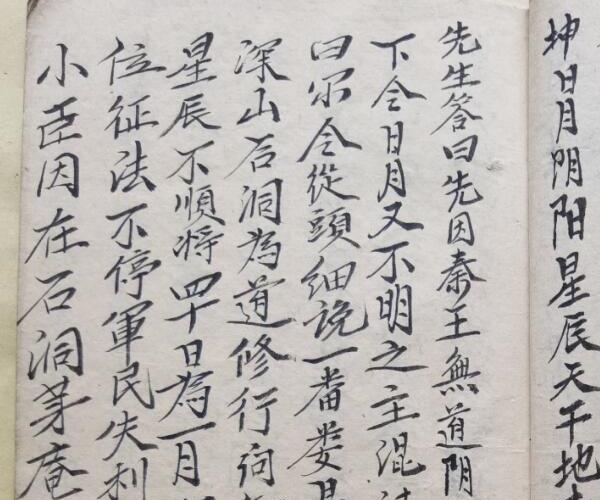 坤日月阴阳星辰天干地
先生答曰先因秦王無道阴
下令日月又不明之主混
曰尔令從頭细説一番娄景
深山石洞為道修行
星辰不順将四十日為一月
位征法不停軍民失利
小臣因在石洞茅庵